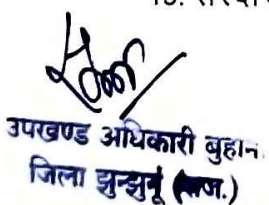 उपखण्ड अधिकारी बुहान
जिला झुन्झुनूं (राज.)